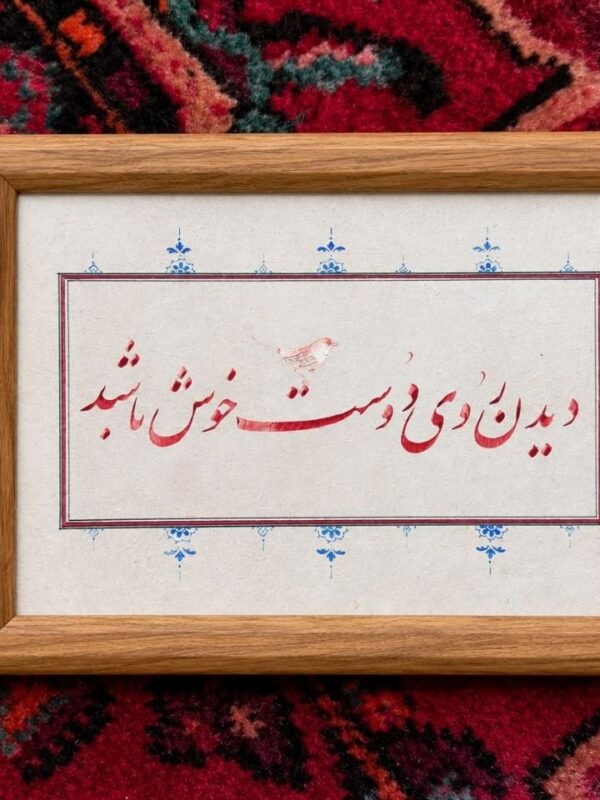 دیدن رُوی دُوست خوش باشد